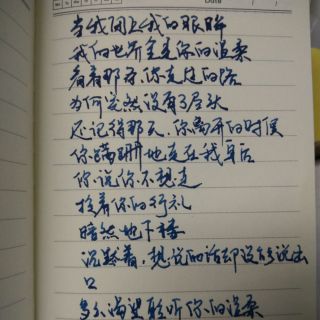 Date
当我闭上我的眼眸
我的世界全是你的温柔
看着那天你走过的路
为何突然没有了尽头
还记得那天你离开的时候
你蹒跚地走在我身后
你说你不想走
拎着你的行礼
暗然地下楼
沉默着，想说的话却没能说出
口
多么渴望聆听你的温柔